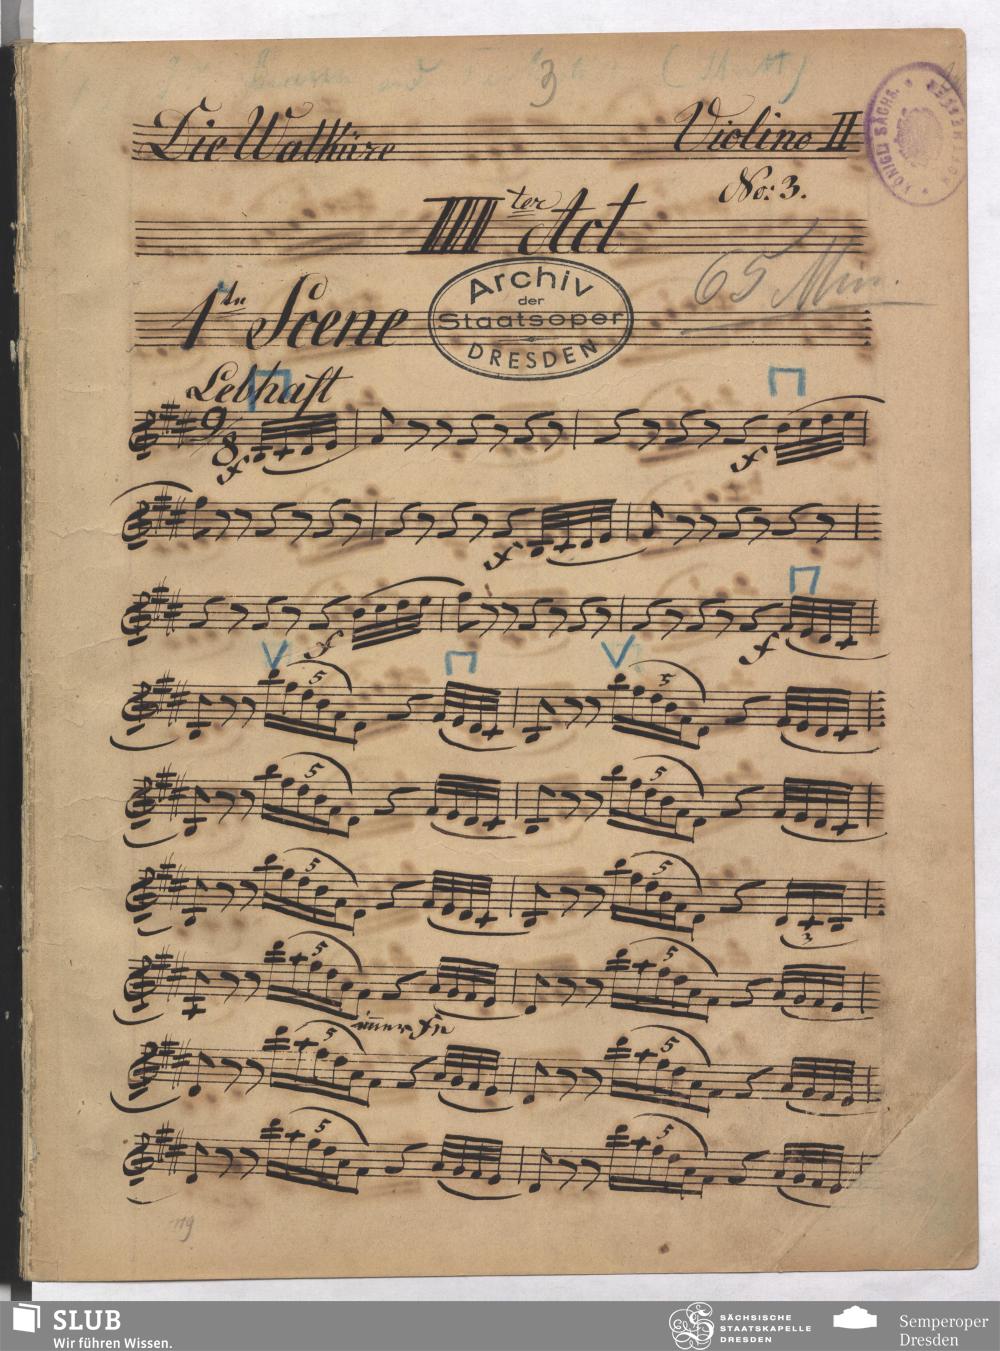 3
Die Walküre Violino II
No: 3.
IIIter Act
65 Min.
1te Scene
Archiv
der
Staatsoper
DRESDEN
KÖNIGL. SÄCHS.
Lebhaft
9/8
f f
f
f f
5 5
5 5
5 5
3
5 5
immer ff
5 5
5 5
119
SLUB
Wir führen Wissen.
SÄCHSISCHE
STAATSKAPELLE
DRESDEN
Semperoper
Dresden